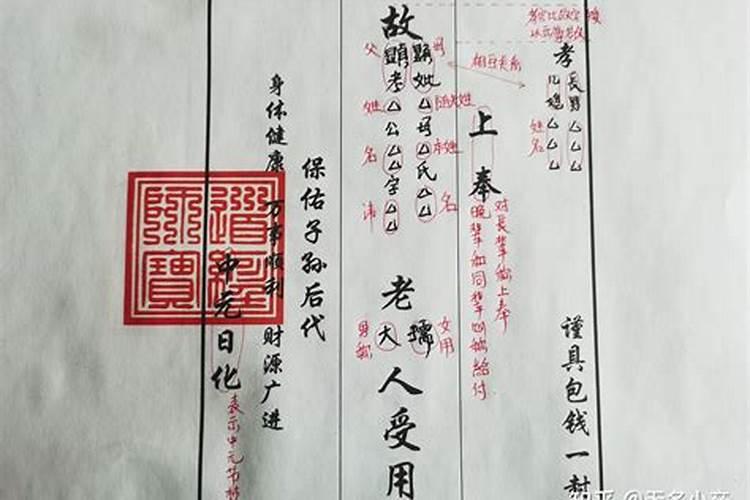 孝
長男△△△
儿媳△△△
姓名
谨具包钱一封
相互关系
上奉
对長辈称上奉
晚辈和同辈
给付
故
母
顯妣△母△氏△△
随夫姓
本姓
名
顯考△公△△字△△
父
姓
名
讳
老
孺
女用
大
男称
人受用
保佑子孙后代
身体健康 万事顺利 财源广进
中元日化
表示中元节
道經師寶
知乎 @无名小卒